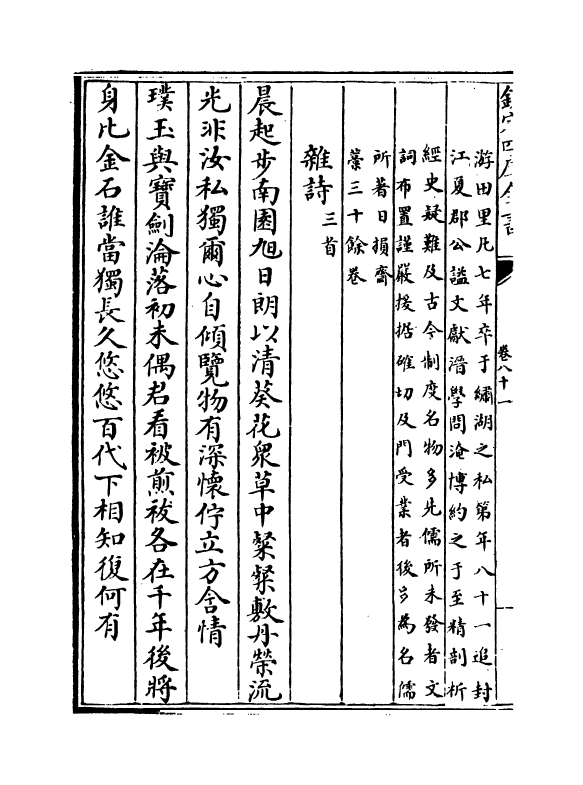 欽定四庫全書
卷八十一
游田里凡七年卒于繡湖之私第年八十一追封
江夏郡公諡文獻溍學問淹博約之于至精剖析
經史疑難及古今制度名物多先儒所未發者文
詞布置謹嚴援据確切及門受業者後多為名儒
所著日損齋
藁三十餘卷
雜詩三首
晨起步南園旭日朗以清葵花衆草中粲粲敷丹榮流
光非汝私獨爾心自傾覽物有深懷佇立方含情
璞玉與寶劍淪落初未偶君看被煎祓各在千年後將
身比金石誰當獨長久悠悠百代下相知復何有